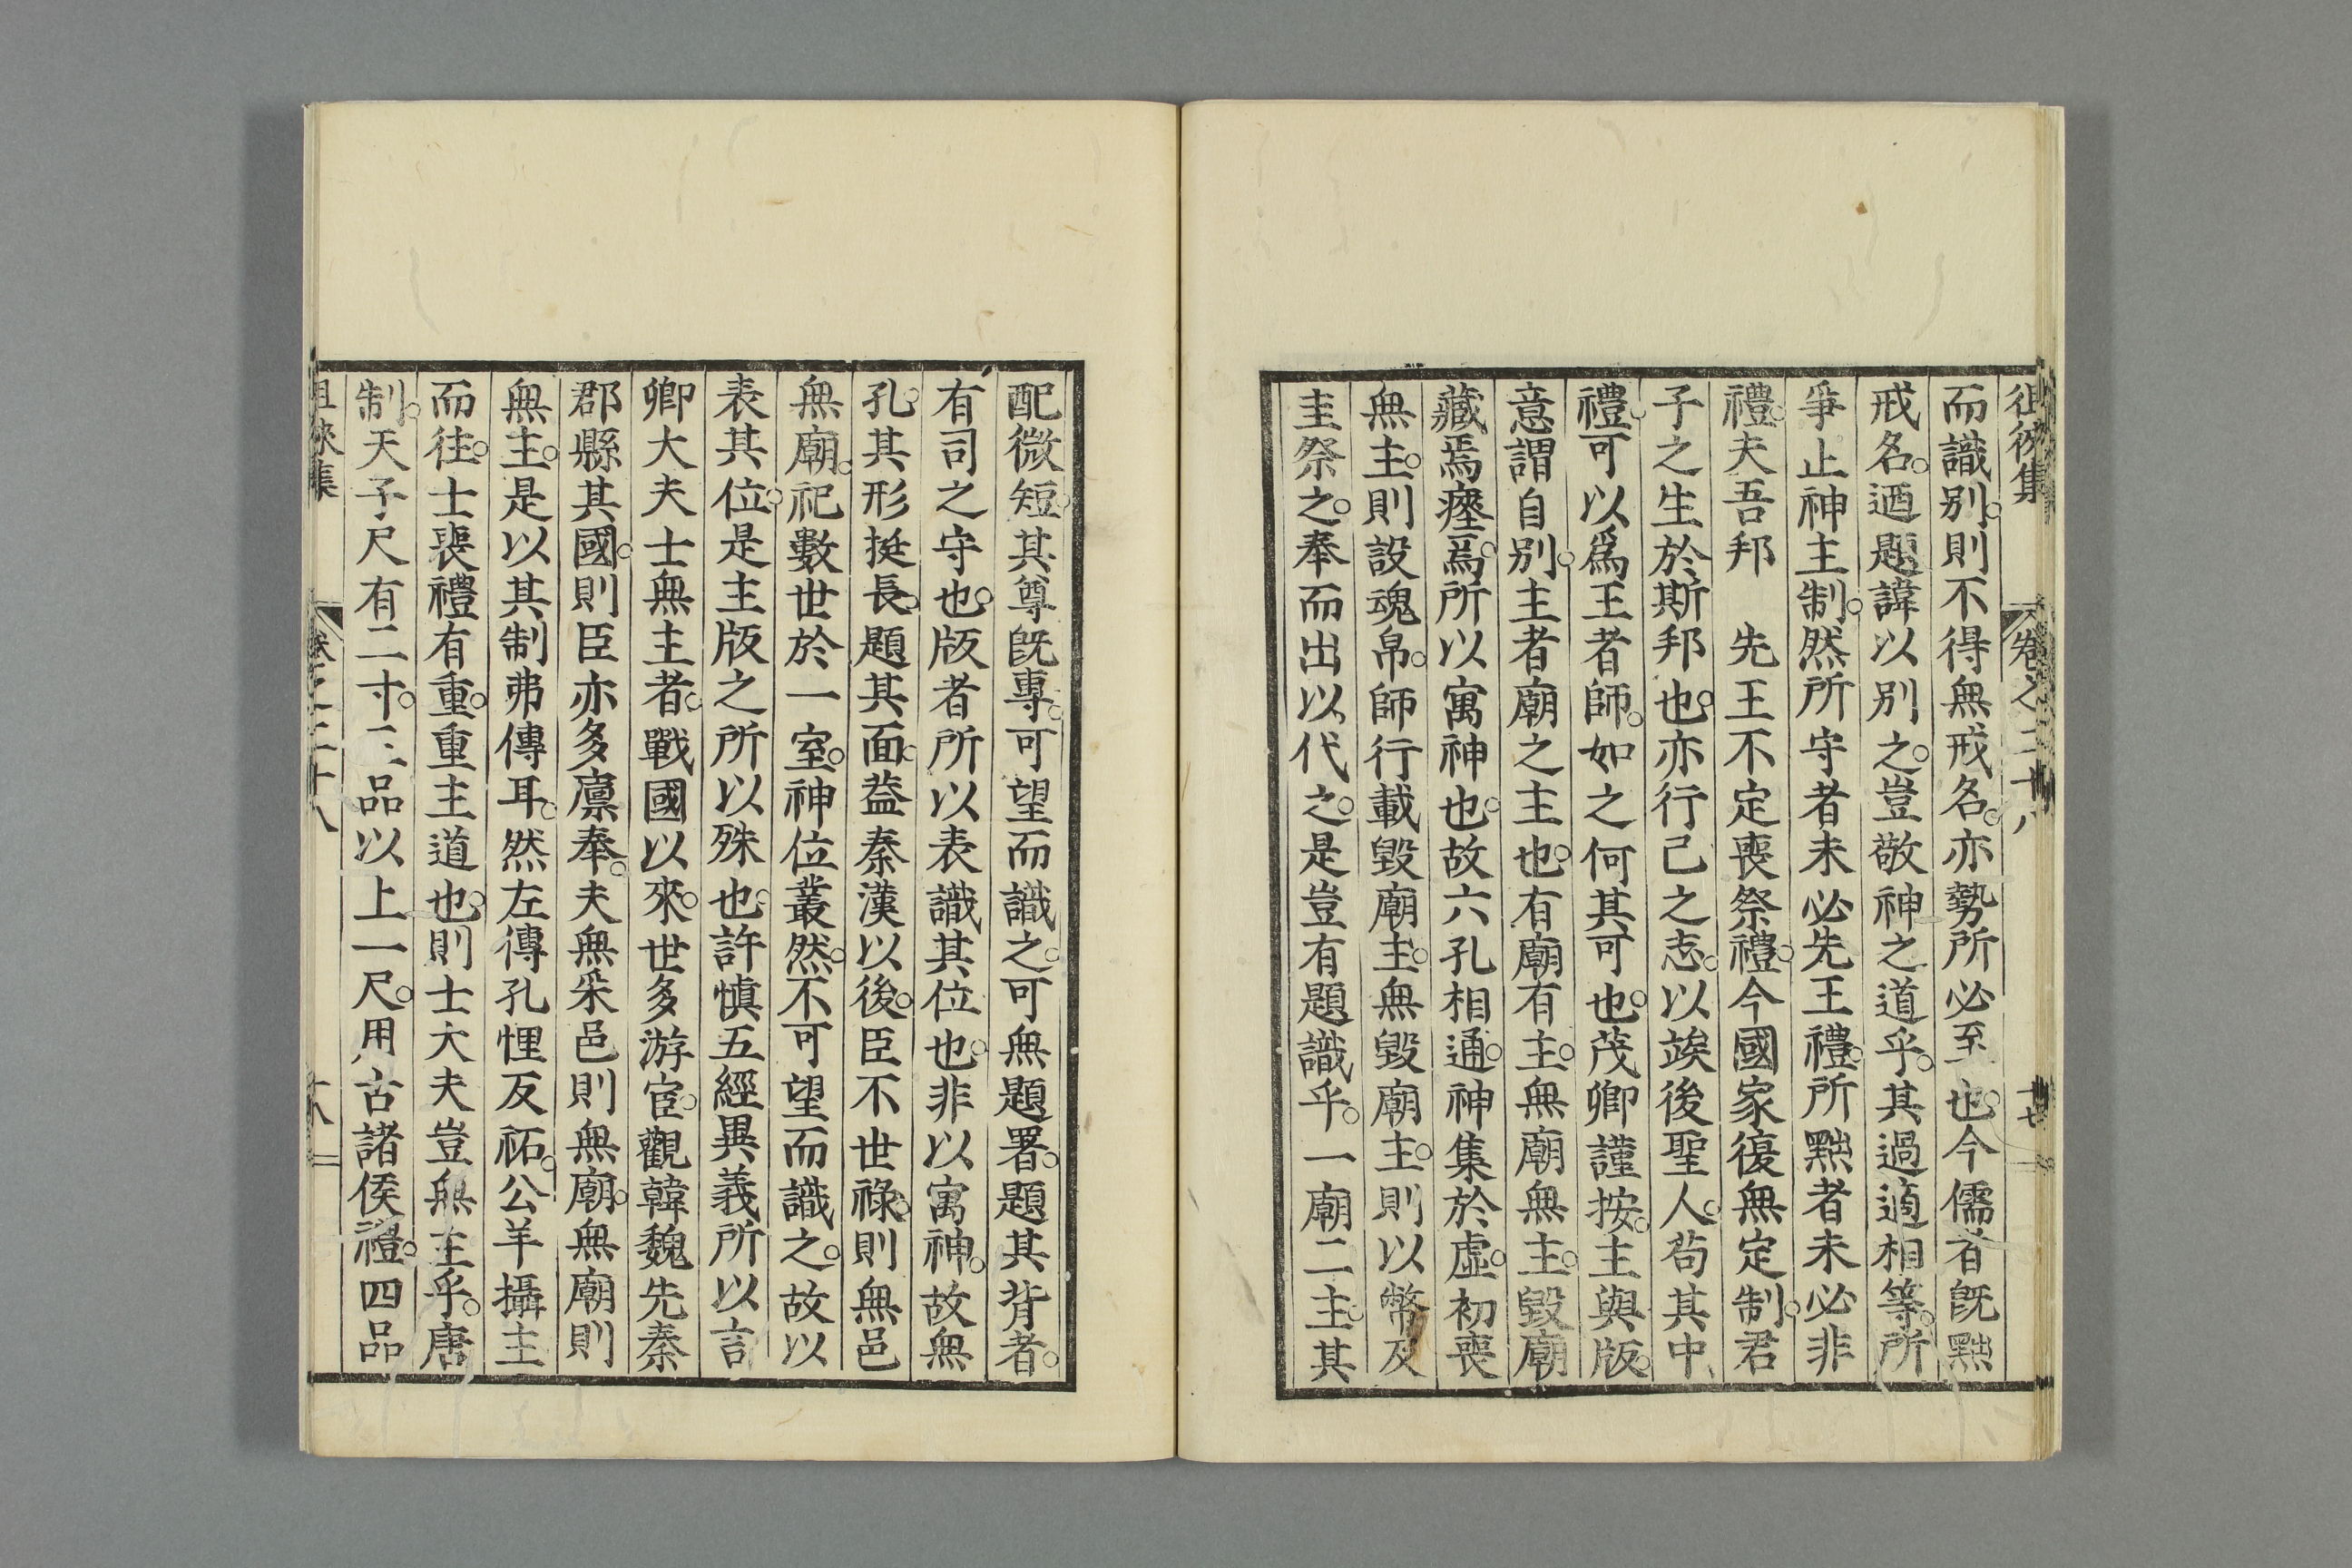 徂徠集 卷之二十八 十七
而識别。則不得無戒名。亦勢所必至也。今儒者旣黜
戒名。迺題諱以别之。豈敬神之道乎。其過適相等。所
爭止神主制。然所守者未必先王禮。所黜者未必非
禮。夫吾邦　先王不定喪祭禮。今國家復無定制。君
子之生於斯邦也。亦行己之志。以竢後聖人。苟其中
禮。可以爲王者師。如之何其可也。茂卿謹按。主與版。
意謂自别。主者廟之主也。有廟有主。無廟無主。毀廟
藏焉瘞焉。所以寓神也。故六孔相通。神集於虛。初喪
無主。則設魂帛。師行載毀廟主。無毀廟主。則以幣及
圭祭之。奉而出以代之。是豈有題識乎。一廟二主。其
配微短。其尊旣專。可望而識之。可無題署。題其背者。
有司之守也。版者所以表識其位也。非以寓神。故無
孔。其形挺長。題其面。葢秦漢以後。臣不世祿。則無邑
無廟。祀數世於一室。神位叢然。不可望而識之。故以
表其位。是主版之所以殊也。許愼五經異義所以言
卿大夫士無主者。戰國以來。世多游宦。觀韓魏先秦
郡縣其國。則臣亦多廩奉。夫無采邑則無廟。無廟則
無主。是以其制弗傳耳。然左傳孔悝反祏。公羊攝主
而往。士喪禮有重。重主道也。則士大夫豈無主乎。唐
制。天子尺有二寸。三品以上一尺。用古諸侯禮。四品
徂徠集 卷之二十八 十八